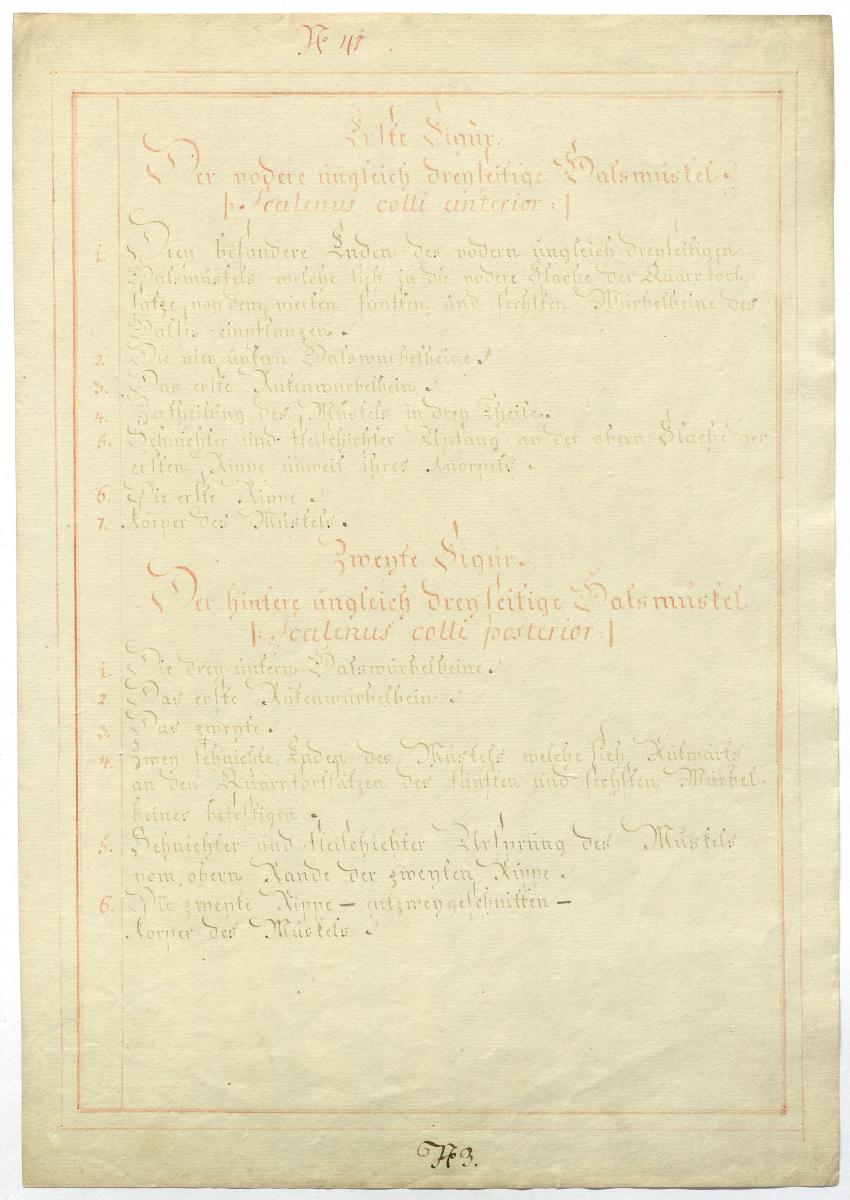 No 48
Erste Figur.
Der vodere ungleich dreyseitige Halsmuskel.
|: Scalenus colli anterior :|
1. Drey besondere Enden des vodern ungleich dreyseitigen
Halsmuskels welche sich in die vodere Fläche der Quärrfort-
sätze von dem vierten fünften und sechsten Würbelbeine des
Halses einpflanzen.
2. Die vier untern Halswürbelbeine.
3. Das erste Rükenwürbelbein.
4. Zertheilung des Muskels in drey Theile.
5. Sehnichter und fleischichter Anfang an der obern Fläche der
ersten Rippe unweit ihres Knorpels.
6. Die erste Rippe.
7. Körper des Muskels.
Zweyte Figur.
Der hintere ungleich dreyseitige Halsmuskel
|: Scalenus colli posterior :|
1. Die drey untern Halswürbelbeine.
2. Das erste Rükenwürbelbein.
3. Das zweyte.
4. Zwey sehnichte Enden des Muskels welche sich Rükwärts
an den Quärrfortsätzen des fünften und sechsten Würbel-
beines befestigen.
5. Sehnichter und fleischichter Ursprung des Muskels
vom obern Rande der zweyten Rippe.
6. Die zweyte Rippe – entzweygeschnitten –
Körper des Muskels.
No 3.